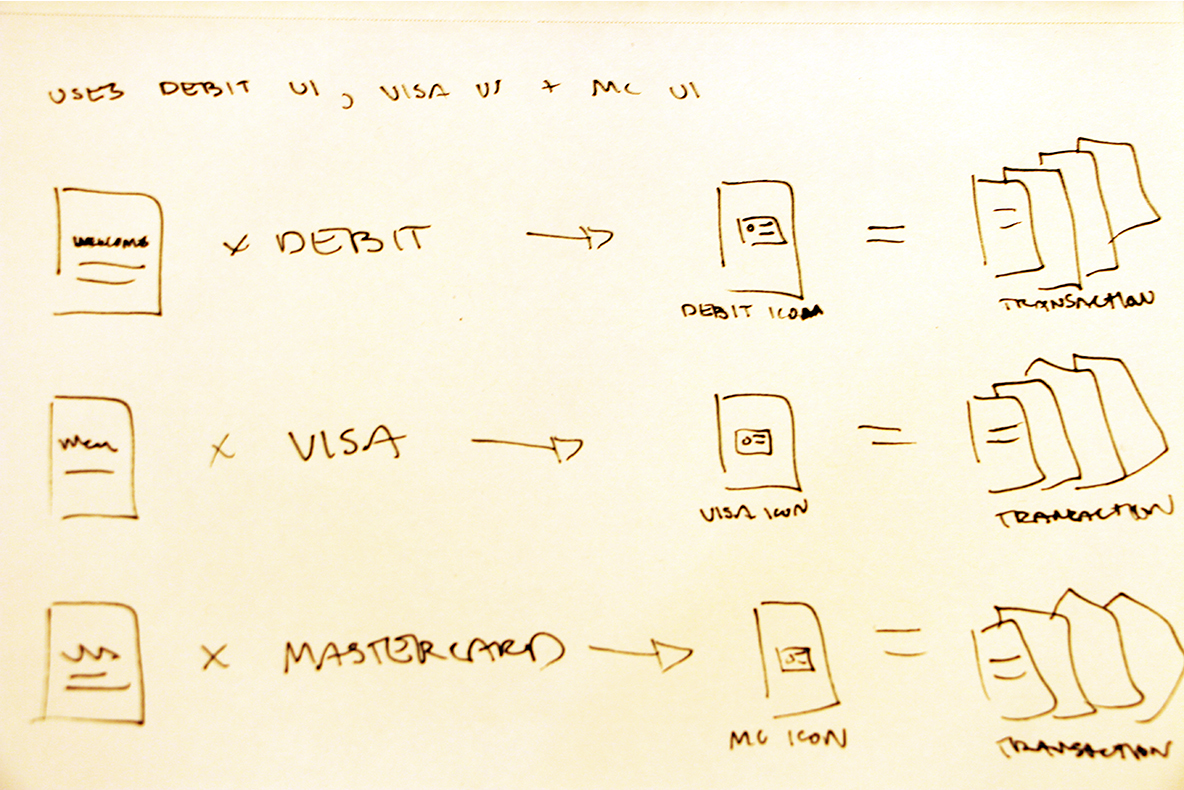 USES DEBIT UI, VISA UI + MC UI
WELCOME
x DEBIT
=
DEBIT ICON
TRANSACTION
x VISA
=
VISA ICON
TRANSACTION
x MASTERCARD
=
MC ICON
TRANSACTION